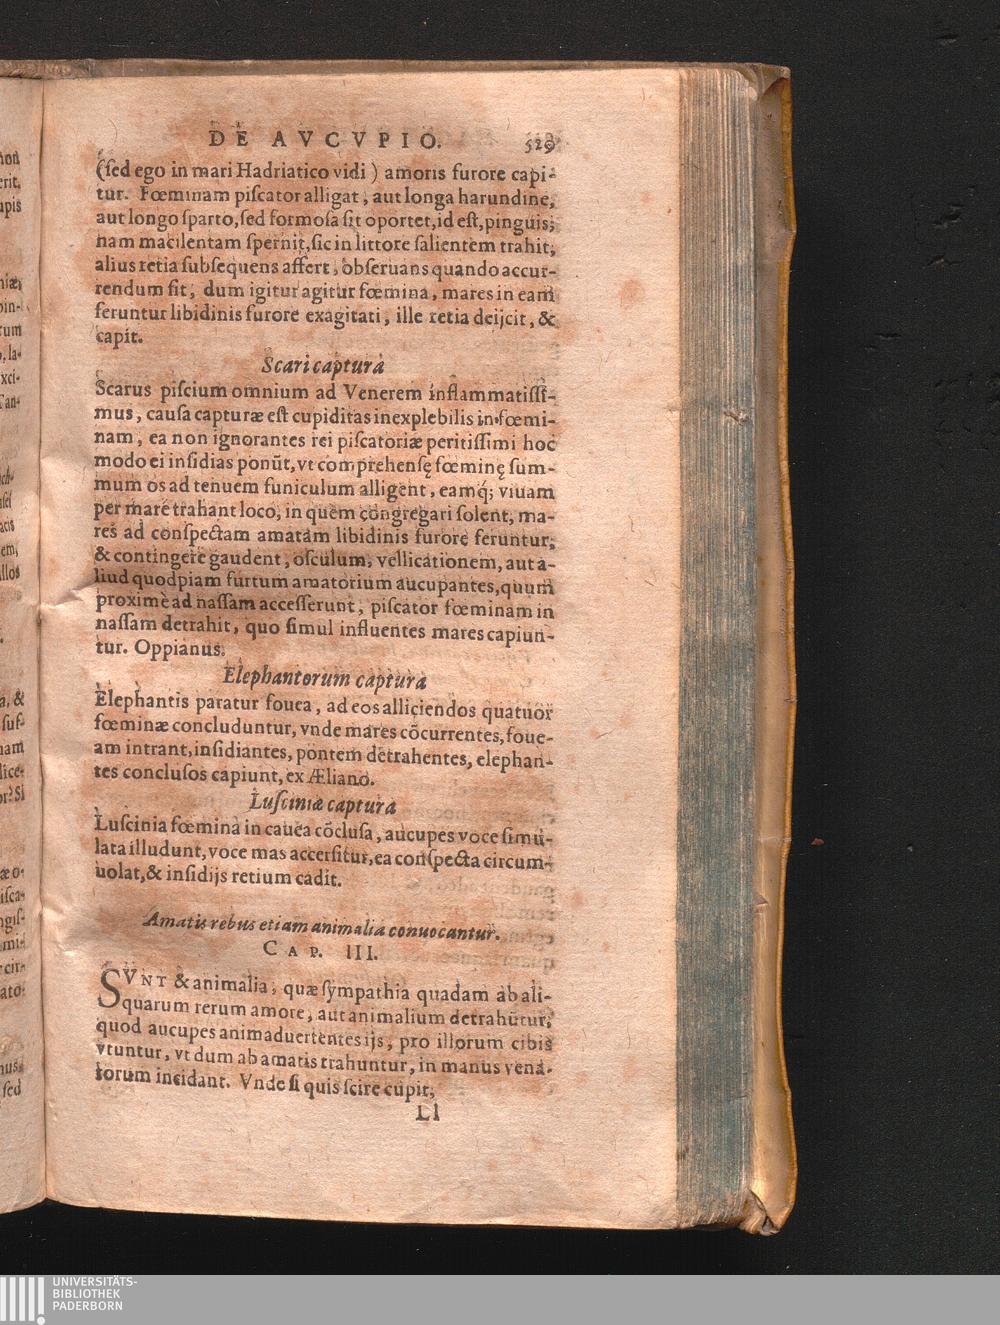 DE AVCVPIO. 529
(ſed ego in mari Hadriatico vidi) amoris furore capi-
tur. Fœminam piſcator alligat, aut longa harundine,
aut longo ſparto, ſed formoſa ſit oportet, id eſt, pinguis;
nam macilentam ſpernit, ſic in littore ſalientem trahit;
alius retia ſubſequens affert, obſeruans quando accur-
rendum ſit, dum igitur agitur fœmina, mares in eam
feruntur libidinis furore exagitati, ille retia deijcit, &
capit.
Scari captura
Scarus piſcium omnium ad Venerem inflammatiſſi-
mus, cauſa capturæ eſt cupiditas inexplebilis in fœmi-
nam, ea non ignorantes rei piſcatoriæ peritiſſimi hoc
modo ei inſidias ponũt, vt comprehenſę fœminę ſum-
mum os ad tenuem funiculum alligent, eamq́; viuam
per mare trahant loco, in quem congregari ſolent, ma-
res ad conſpectam amatam libidinis furore feruntur,
& contingere gaudent, oſculum, vellicationem, aut a-
liud quodpiam furtum amatorium aucupantes, quum
proximè ad naſſam acceſſerunt, piſcator fœminam in
naſſam detrahit, quo ſimul influentes mares capiun-
tur. Oppianus.
Elephantorum captura
Elephantis paratur fouea, ad eos alliciendos quatuor
fœminæ concluduntur, vnde mares cõcurrentes, foue-
am intrant, inſidiantes, pontem detrahentes, elephan-
tes concluſos capiunt, ex Æliano.
Luſciniæ captura
Luſcinia fœmina in cauea cõcluſa, aucupes voce ſimu-
lata illudunt, voce mas accerſitur, ea conſpecta circum-
uolat, & inſidijs retium cadit.
Amatis rebus etiam animalia conuocantur.
CAP. III.
SVNT & animalia, quæ ſympathia quadam ab ali-
quarum rerum amore, aut animalium detrahũtur,
quod aucupes animaduertentes ijs, pro illorum cibis
vtuntur, vt dum ab amatis trahuntur, in manus vena-
torum incidant. Vnde ſi quis ſcire cupit,
Ll
UNIVERSITÄTS-
BIBLIOTHEK
PADERBORN